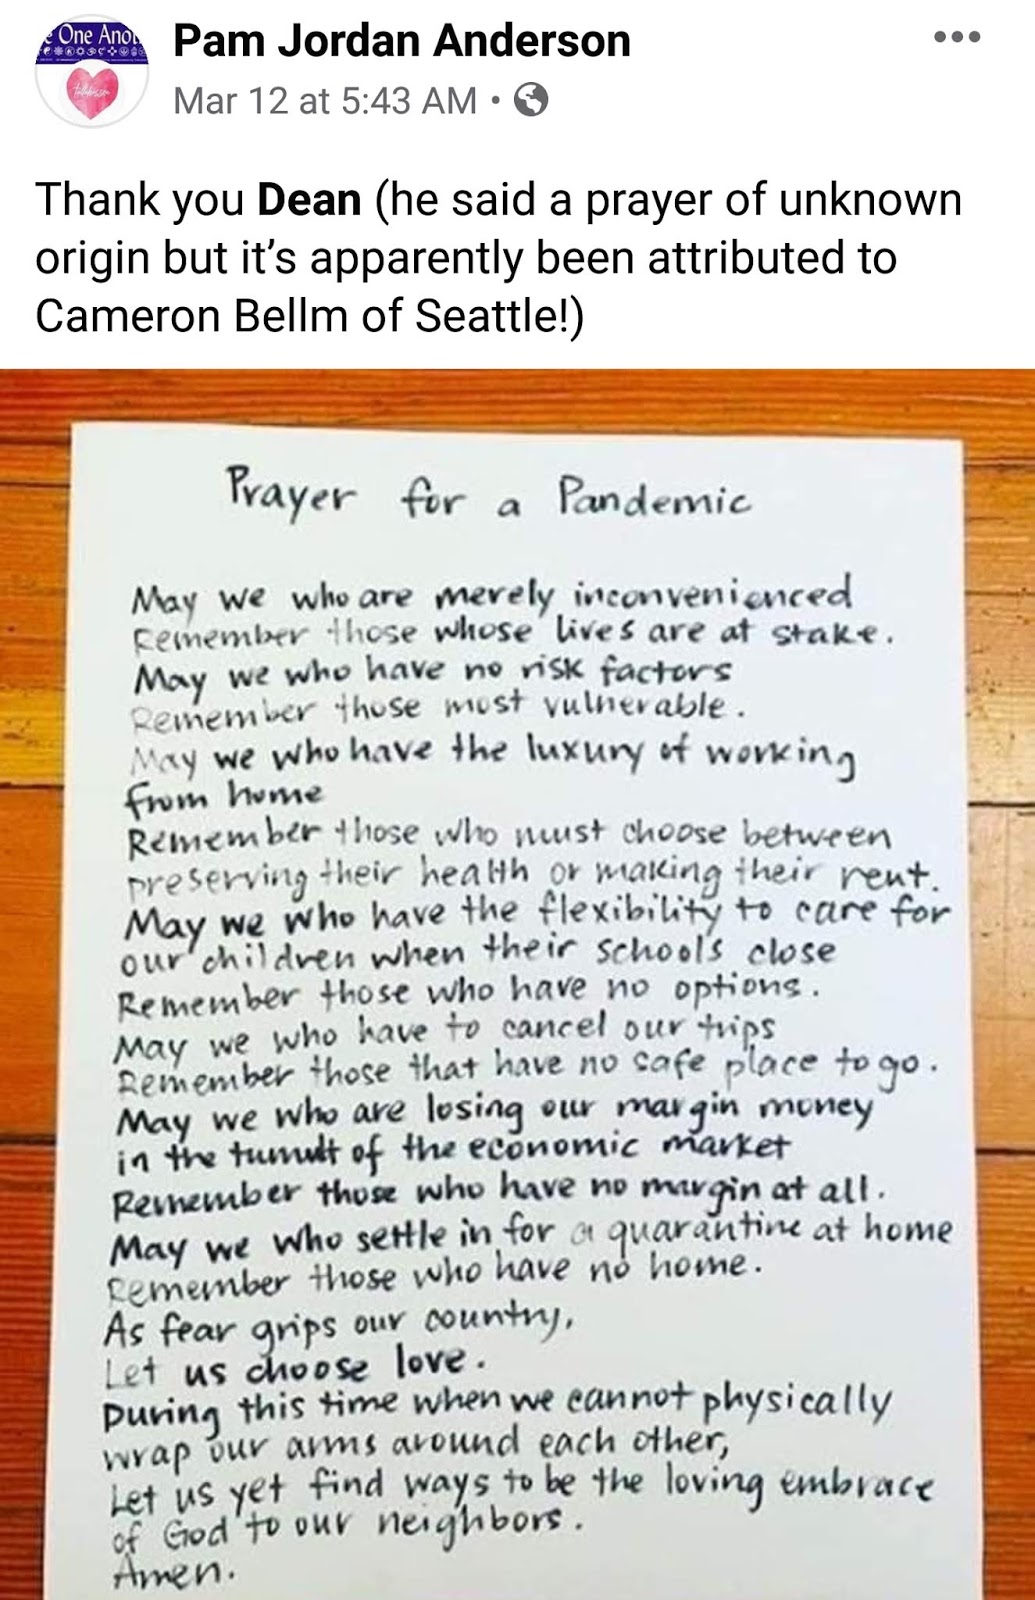 One Ano
Pam Jordan Anderson
Mar 12 at 5:43 AM •
Thank you Dean (he said a prayer of unknown
origin but it's apparently been attributed to
Cameron Bellm of Seattle!)
Prayer for a Pandemic
May we who are merely inconvenienced
Remember those whose lives are at stake.
May we who have no risk factors
Remember those most vulnerable.
May we who have the luxury of working
from home
Remember those who must choose between
preserving their health or making their rent.
May we who have the flexibility to care for
our children when their schools close
Remember those who have no options.
May we who have to cancel our trips
Remember those that have no safe place to go.
May we who are losing our margin money
in the tumult of the economic market
Remember those who have no margin at all.
May we who settle in for a quarantine at home
Remember those who have no home.
As fear grips our country,
Let us choose love.
During this time when we cannot physically
wrap our arms around each other,
Let us yet find ways to be the loving embrace
of God to our neighbors.
Amen.